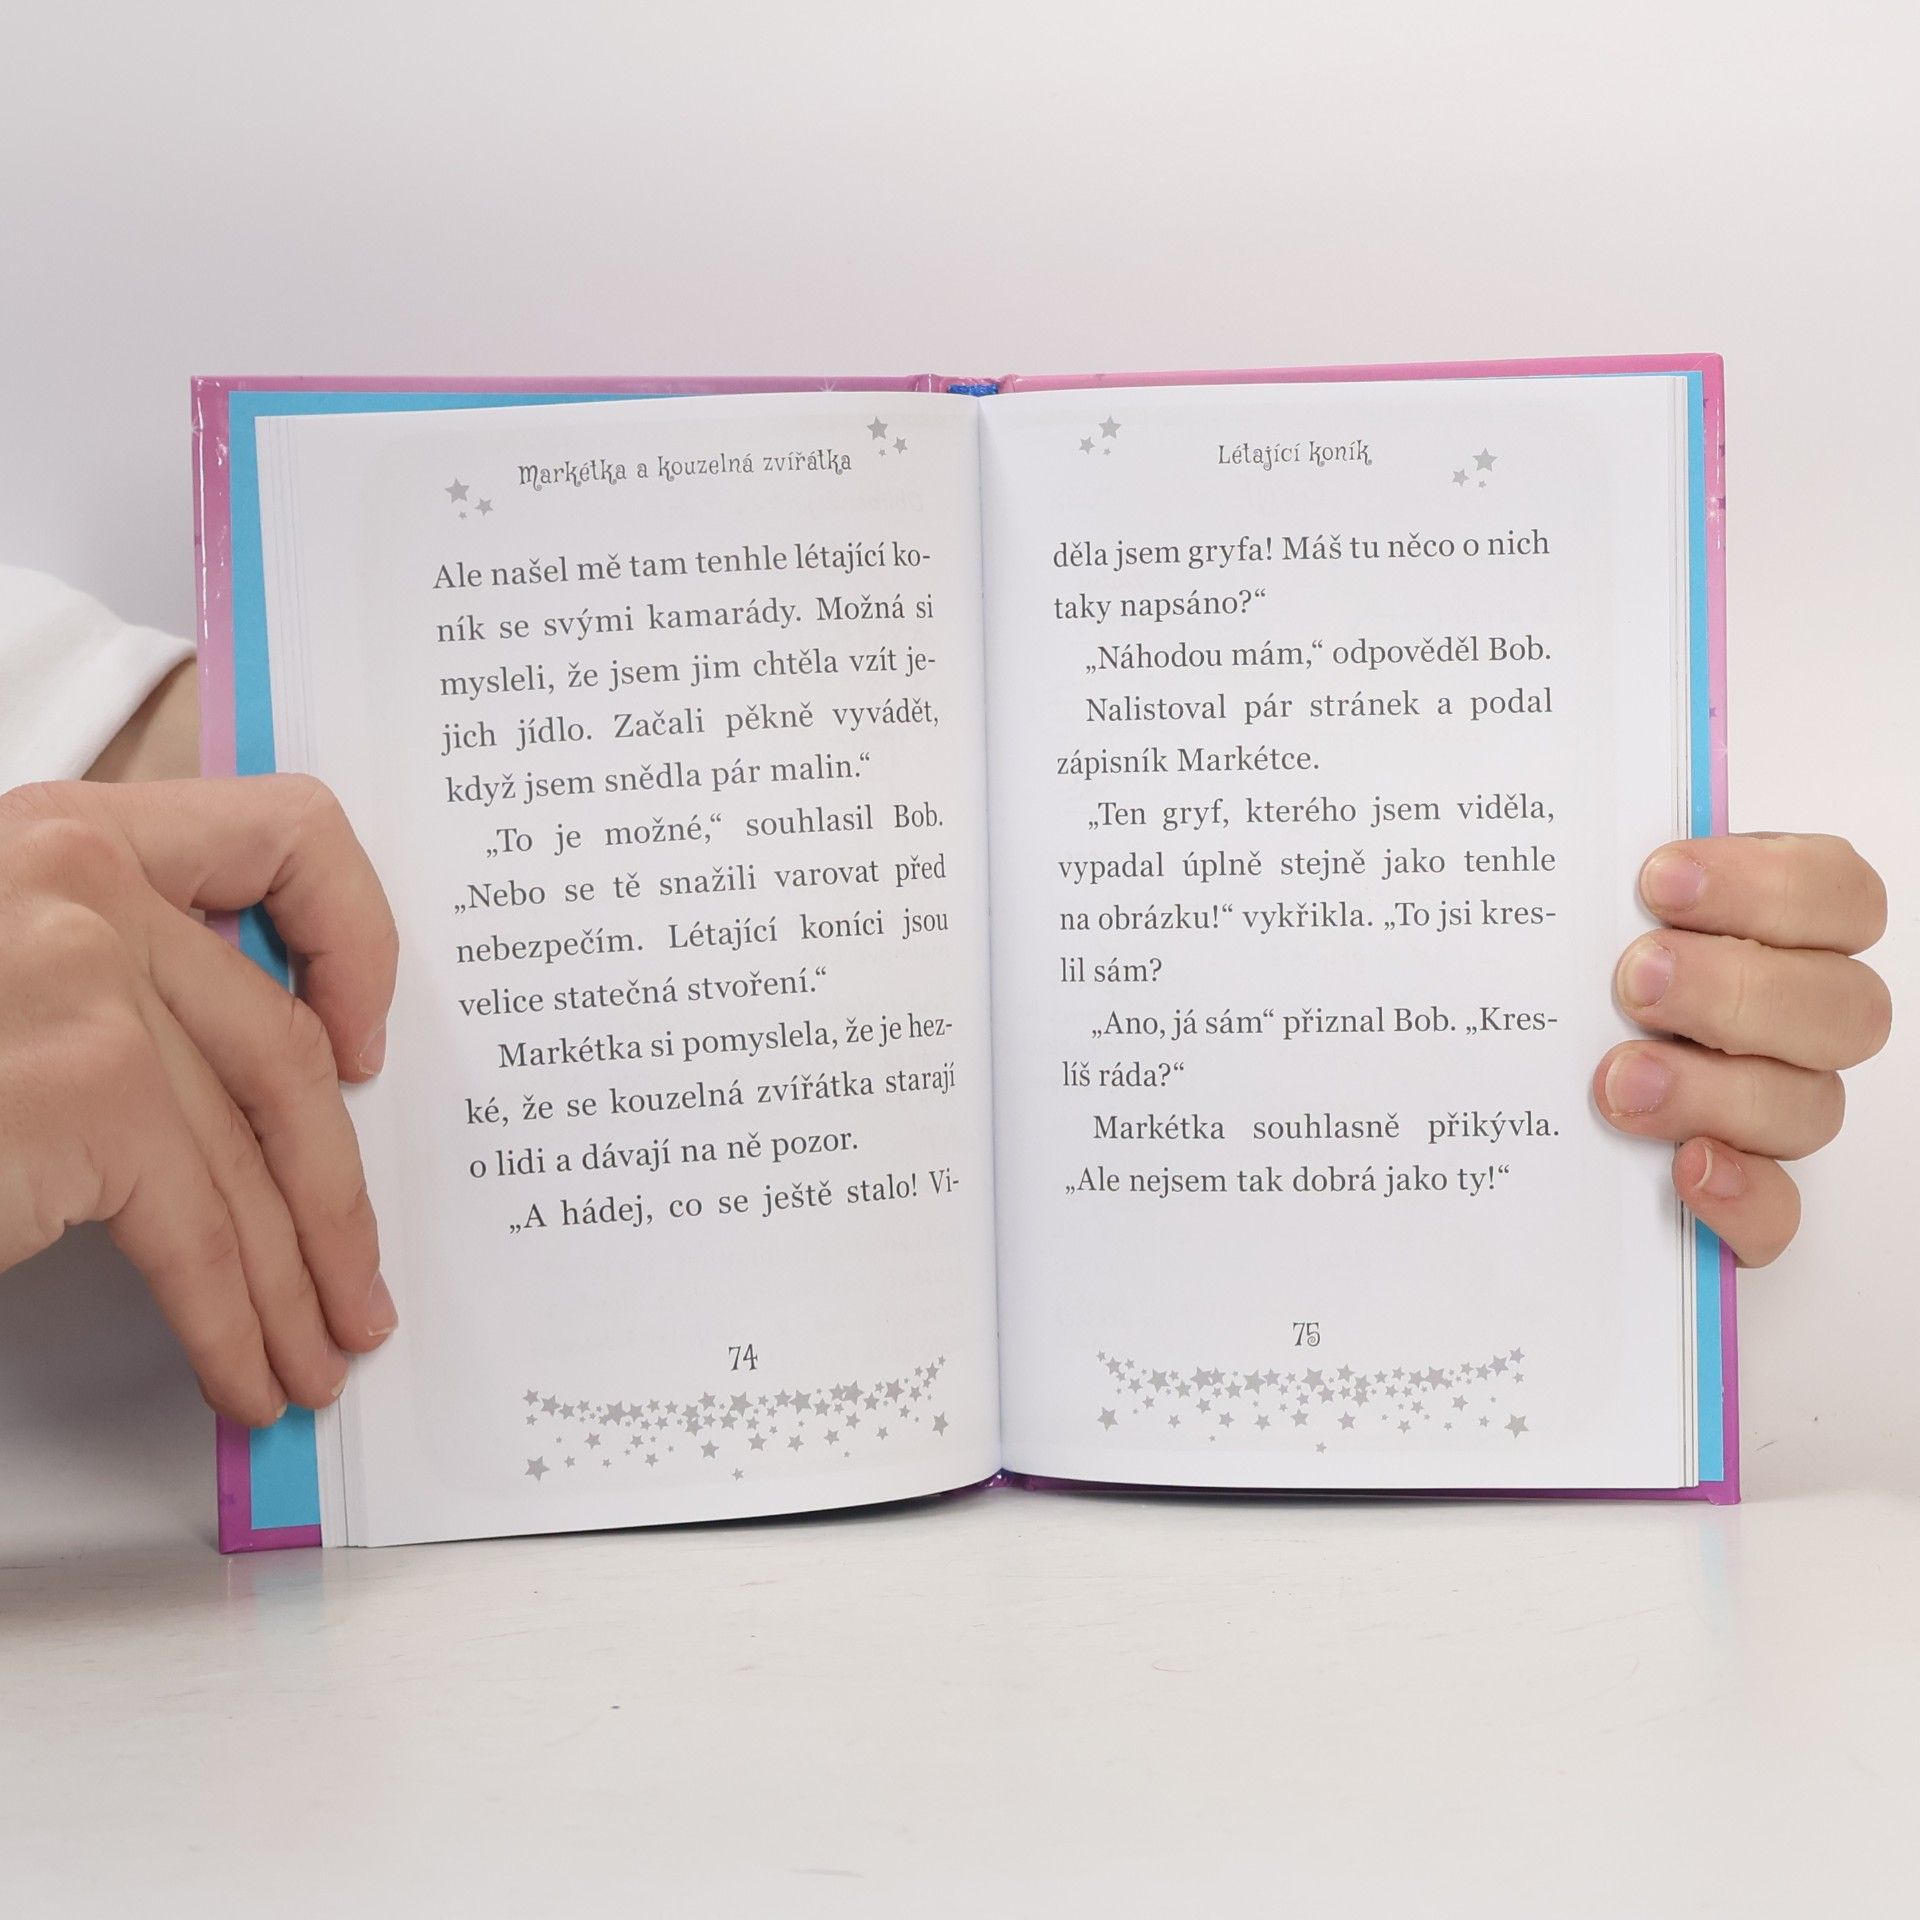 Markétka a kouzelná zvířátka
Ale našel mě tam tenhle létající ko-
ník se svými kamarády. Možná si
mysleli, že jsem jim chtěla vzít je-
jich jídlo. Začali pěkně vyvádět,
když jsem snědla pár malin.“
„To je možné,“ souhlasil Bob.
„Nebo se tě snažili varovat před
nebezpečím. Létající koníci jsou
velice statečná stvoření.“
Markétka si pomyslela, že je hez-
ké, že se kouzelná zvířátka starají
o lidi a dávají na ně pozor.
„A hádej, co se ještě stalo! Vi-
74
Létající koník
děla jsem gryfa! Máš tu něco o nich
taky napsáno?“
„Náhodou mám,“ odpověděl Bob.
Nalistoval pár stránek a podal
zápisník Markétce.
„Ten gryf, kterého jsem viděla,
vypadal úplně stejně jako tenhle
na obrázku!“ vykřikla. „To jsi kres-
lil sám?
„Ano, já sám“ přiznal Bob. „Kres-
líš ráda?“
Markétka souhlasně přikývla.
„Ale nejsem tak dobrá jako ty!“
75